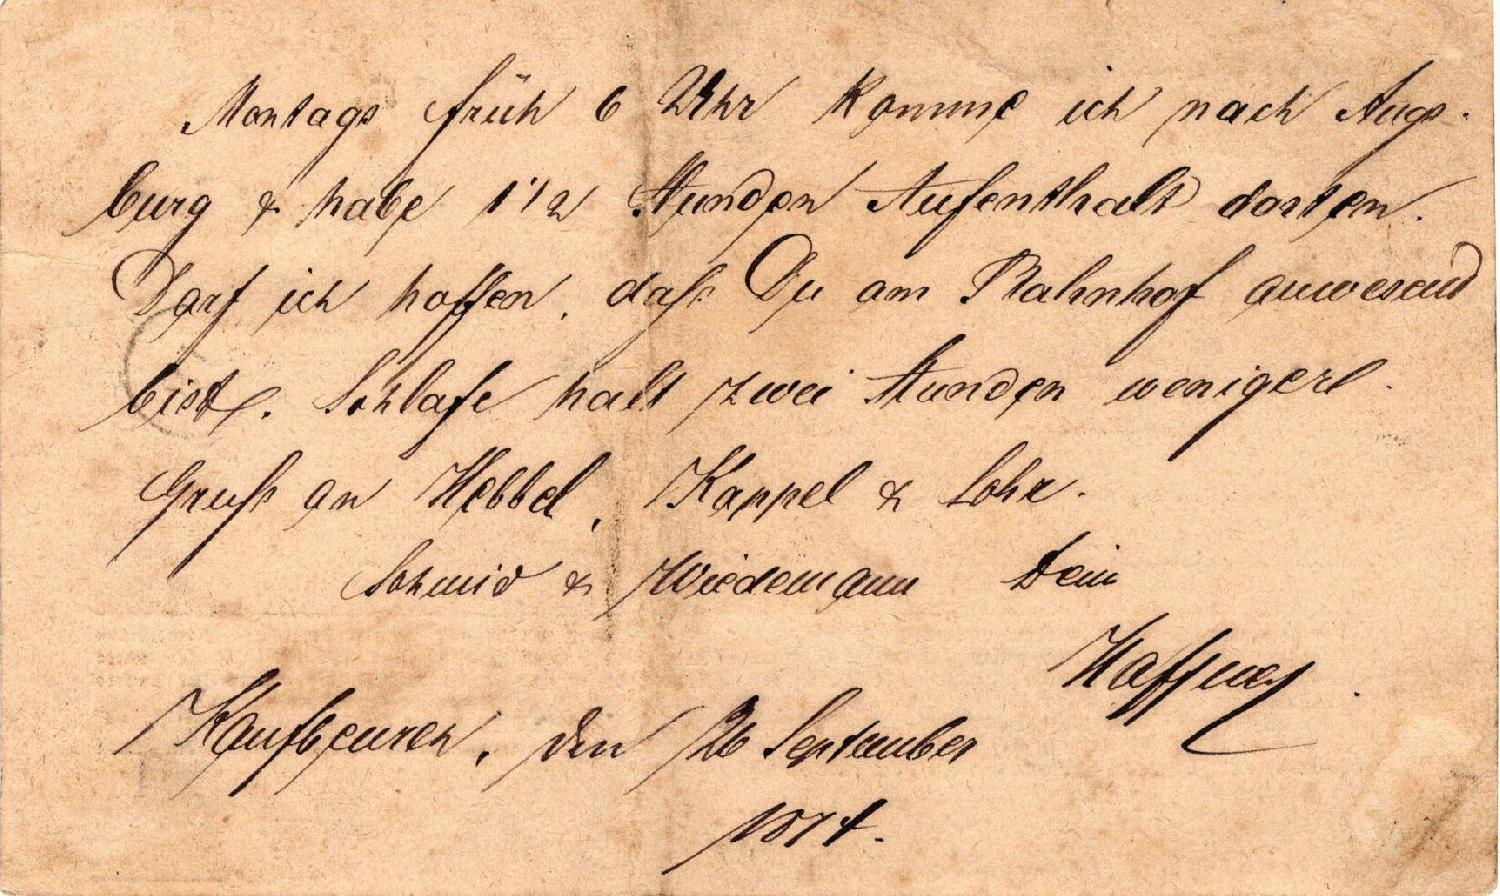 Montags früh 6 Uhr komme ich nach Augs-
burg & habe 1 1/2 Stunden Aufenthalt dorten.
Darf ich hoffen, daß Du am Bahnhof anwesend
bist. Schlafe halt zwei Stunden weniger.
Gruß an Hebbel, Kappel & Lohr.
Schmid & Wiedemann Dein
Haffner
Kaufbeuren, den 26 September
1874.